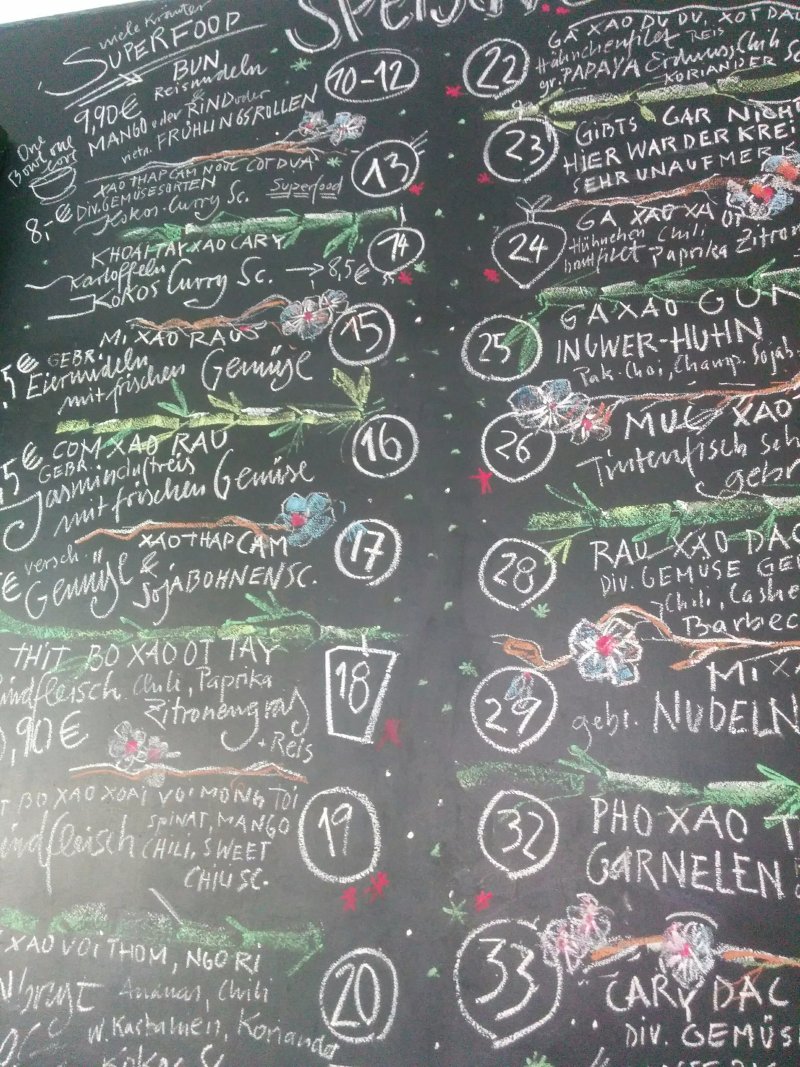 SPEIS
viele Kräuter
SUPERFOOD
BUN
Reisnudeln
10-12
9,90€
MANGO oder RIND oder
vietn. FRÜHLINGSROLLEN
One
Bowl one
Love
XAO THAP CAM NOUC COT DUA
13
DIV. GEMÜSESORTEN
Superfood
8,-€
Kokos-Curry Sc.
KHOAI TAY XAO CARY
14
Kartoffeln
Kokos Curry Sc. → 8,5€
MI XAO RAU
15
5€ GEBR.
Eiernudeln
mit frischen Gemüse
COM XAO RAU
16
5€ GEBR.
Jasminduftreis
mit frischen Gemüse
XAO THAP CAM
17
€ versch.
Gemüse &
SOJABOHNENSC.
THIT BO XAO OT TAY
18
indfleisch Chili, Paprika
Zitronengras
,90€
+ Reis
T BO XAO XOAI VOI MONG TOI
19
indfleisch SPINAT, MANGO
CHILI, SWEET
CHILISC.
XAO VOI THOM, NGO RI
20
nbrust Ananas, Chili
W. Kastanien, Koriander
Kokos Sc.
22
GA XAO DU DU, XOT DAU
Hähnchenfilet REIS
gr. PAPAYA Erdnuss, Chili Sc
KORIANDER
23
GIBTS GAR NICHT
HIER WAR DER KREI
SEHR UNAUFMERK
24
GA XAO XA OT
Hühnchen Chili
brustfilet Paprika Zitron
25
GA XAO GUN
INGWER-HUHN
Pak-Choi, Champ. Sojab.
26
MUC XAO
Tintenfisch Sch
gebr
28
RAU XAO DAC
DIV. GEMÜSE GE
Chili, Cashe
Barbec
29
MI XA
gebr. NUDELN
32
PHO XAO T
GARNELEN
33
CARY DAC
DIV. GEMÜS